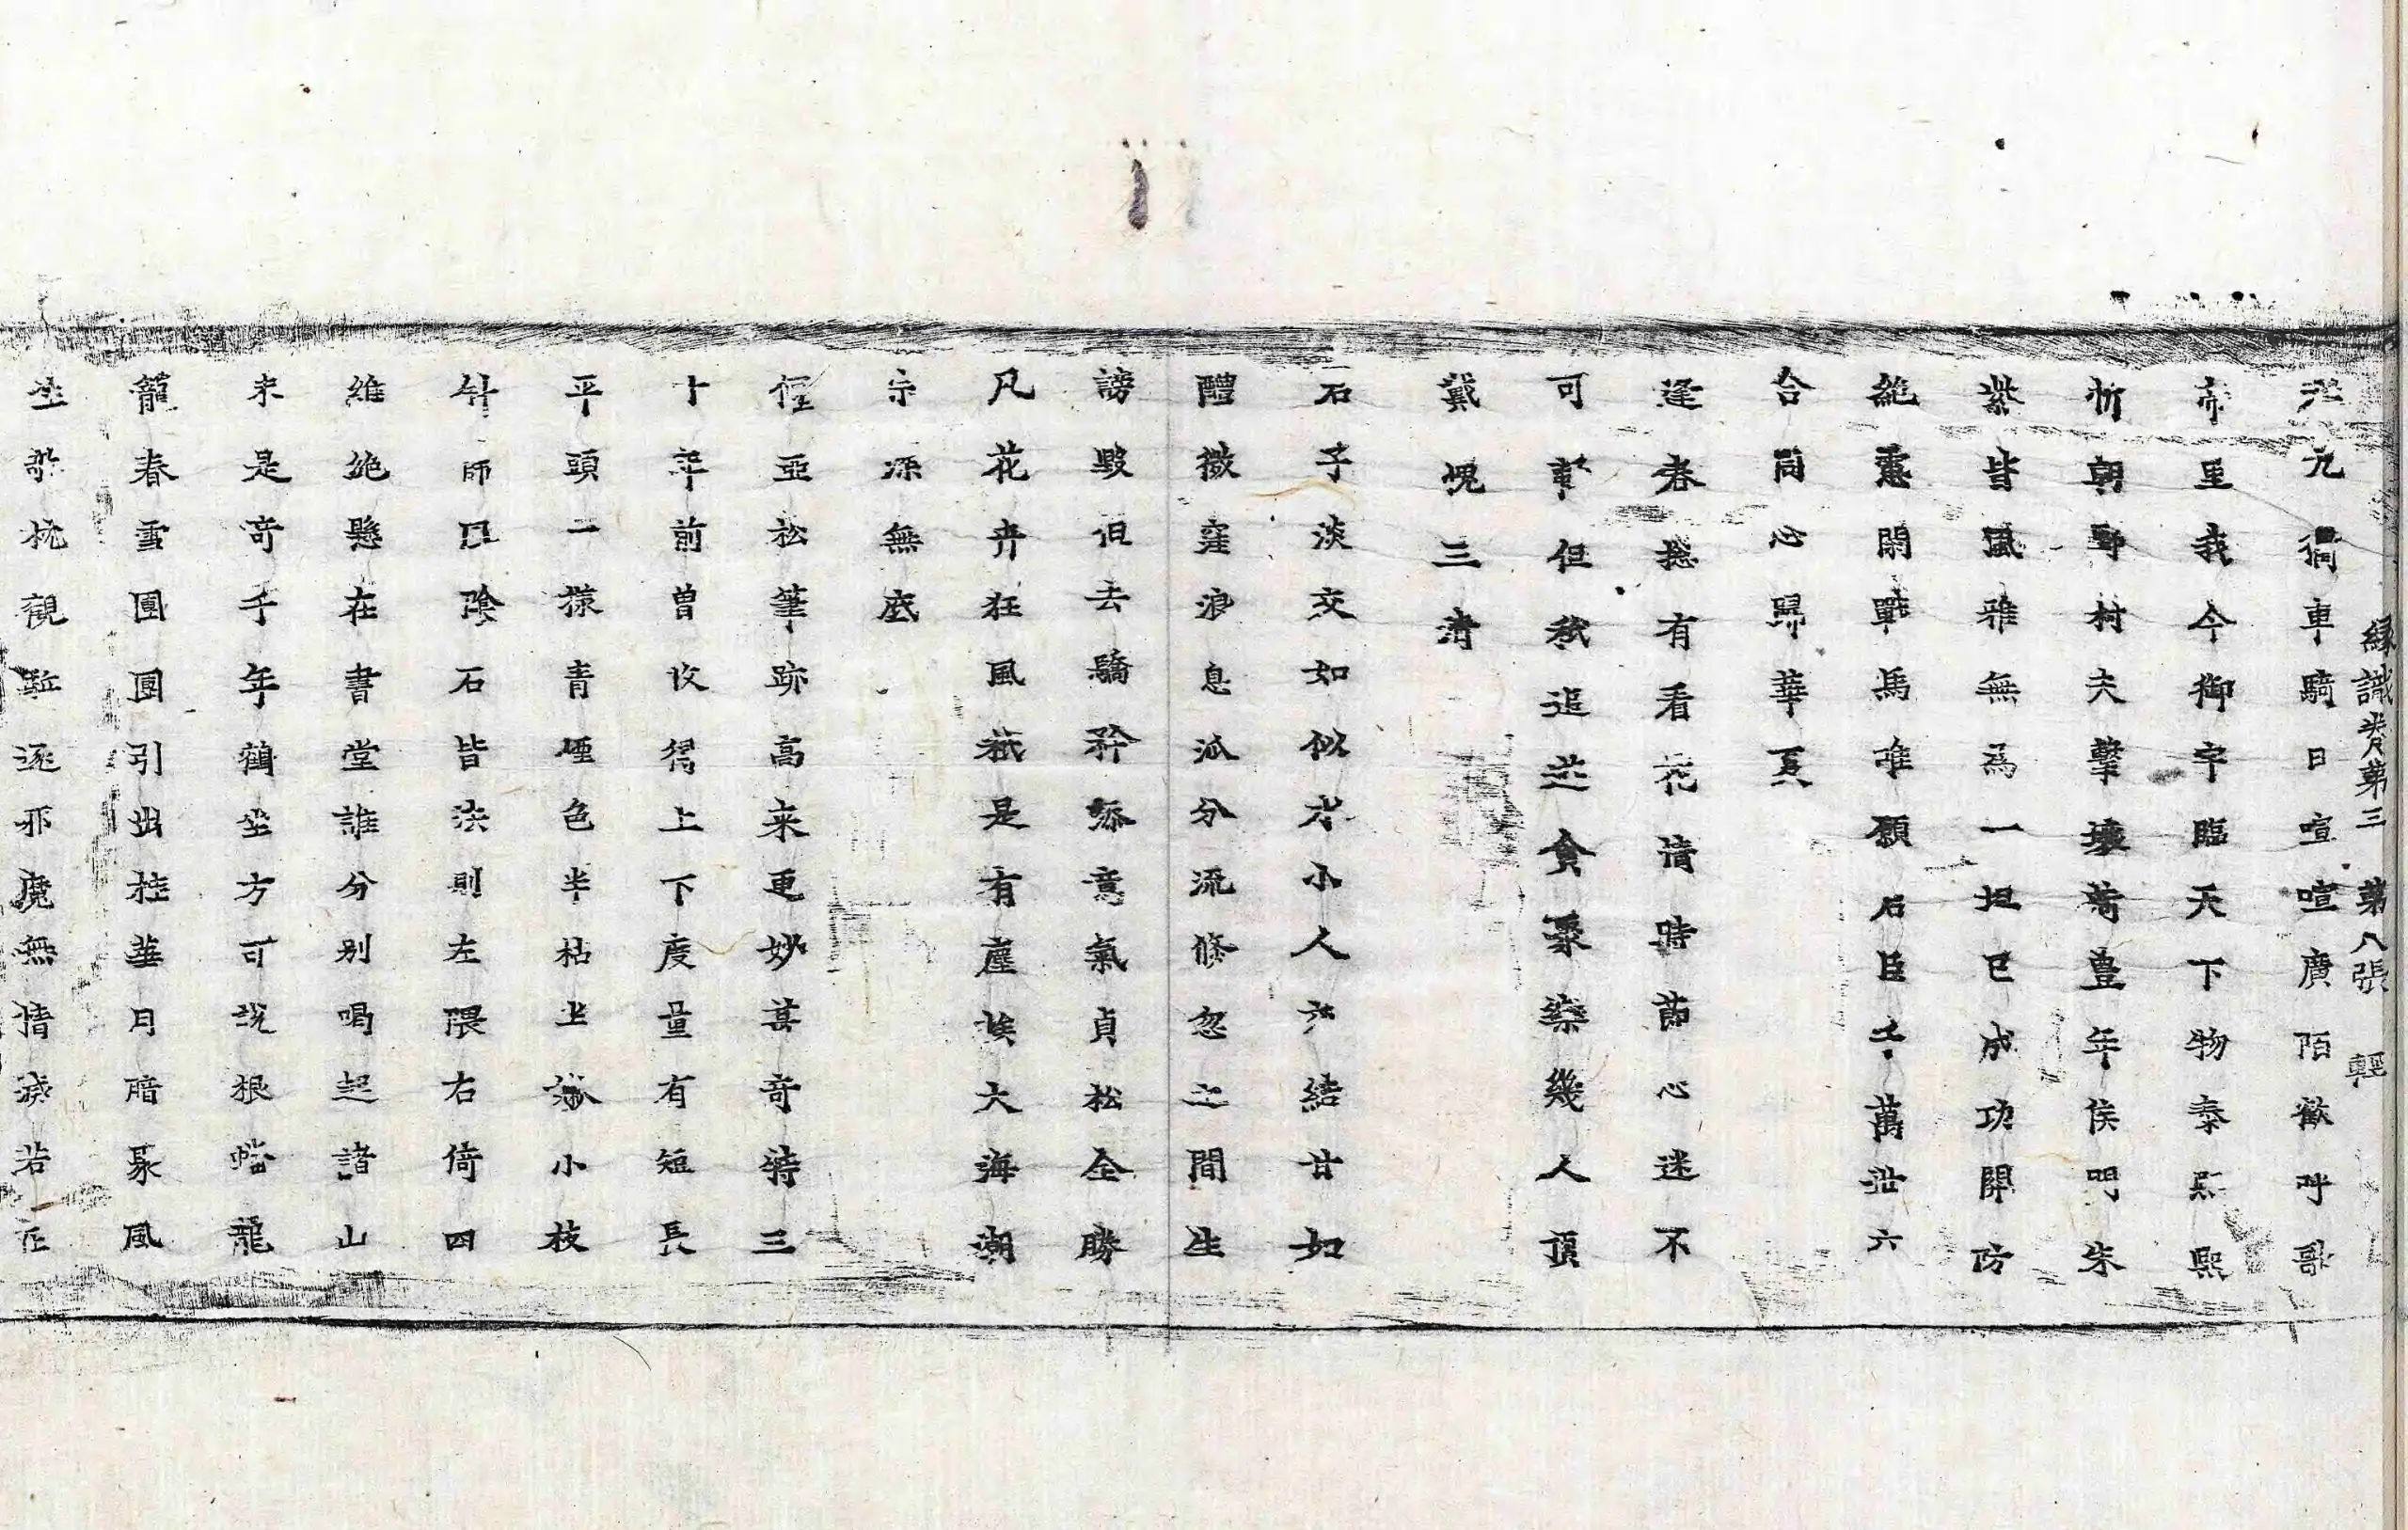 緣識卷第三 第八張 輕
元 車騎日喧喧廣陌歡呼歌
帝里我今御宇臨天下物泰熙熙
忻朝野村夫擊壤荷豊年侯門朱
紫皆風雅無爲一担已成功開防
絶塞閑戰馬唯願石臣千萬 六
合同心歸華夏
逢春捴有看花情時節心迷不
可事但秖追 貪聚 幾人頂
戴愧三清
石子淡交如似水小人 結甘如
醴微窪浪息派分流倏忽之間生
謗毀但去驕矜添意氣貞松全勝
凡花卉狂風秖是有塵埃大海潮
宗源無底
偃亞松筆跡高来更妙甚奇特三
十年前曾收得上下度量有短長
平頭一㨾青煙色半枯半 小枝
針師 陰石皆法則左隈右倚四
維絶懸在書堂誰分别喝起諸山
未是奇千年鶴坐方可説根蟠龍
籠春雪團團引出桂華月暗聚風
坐 枕觀 逐邪魔無情 若在